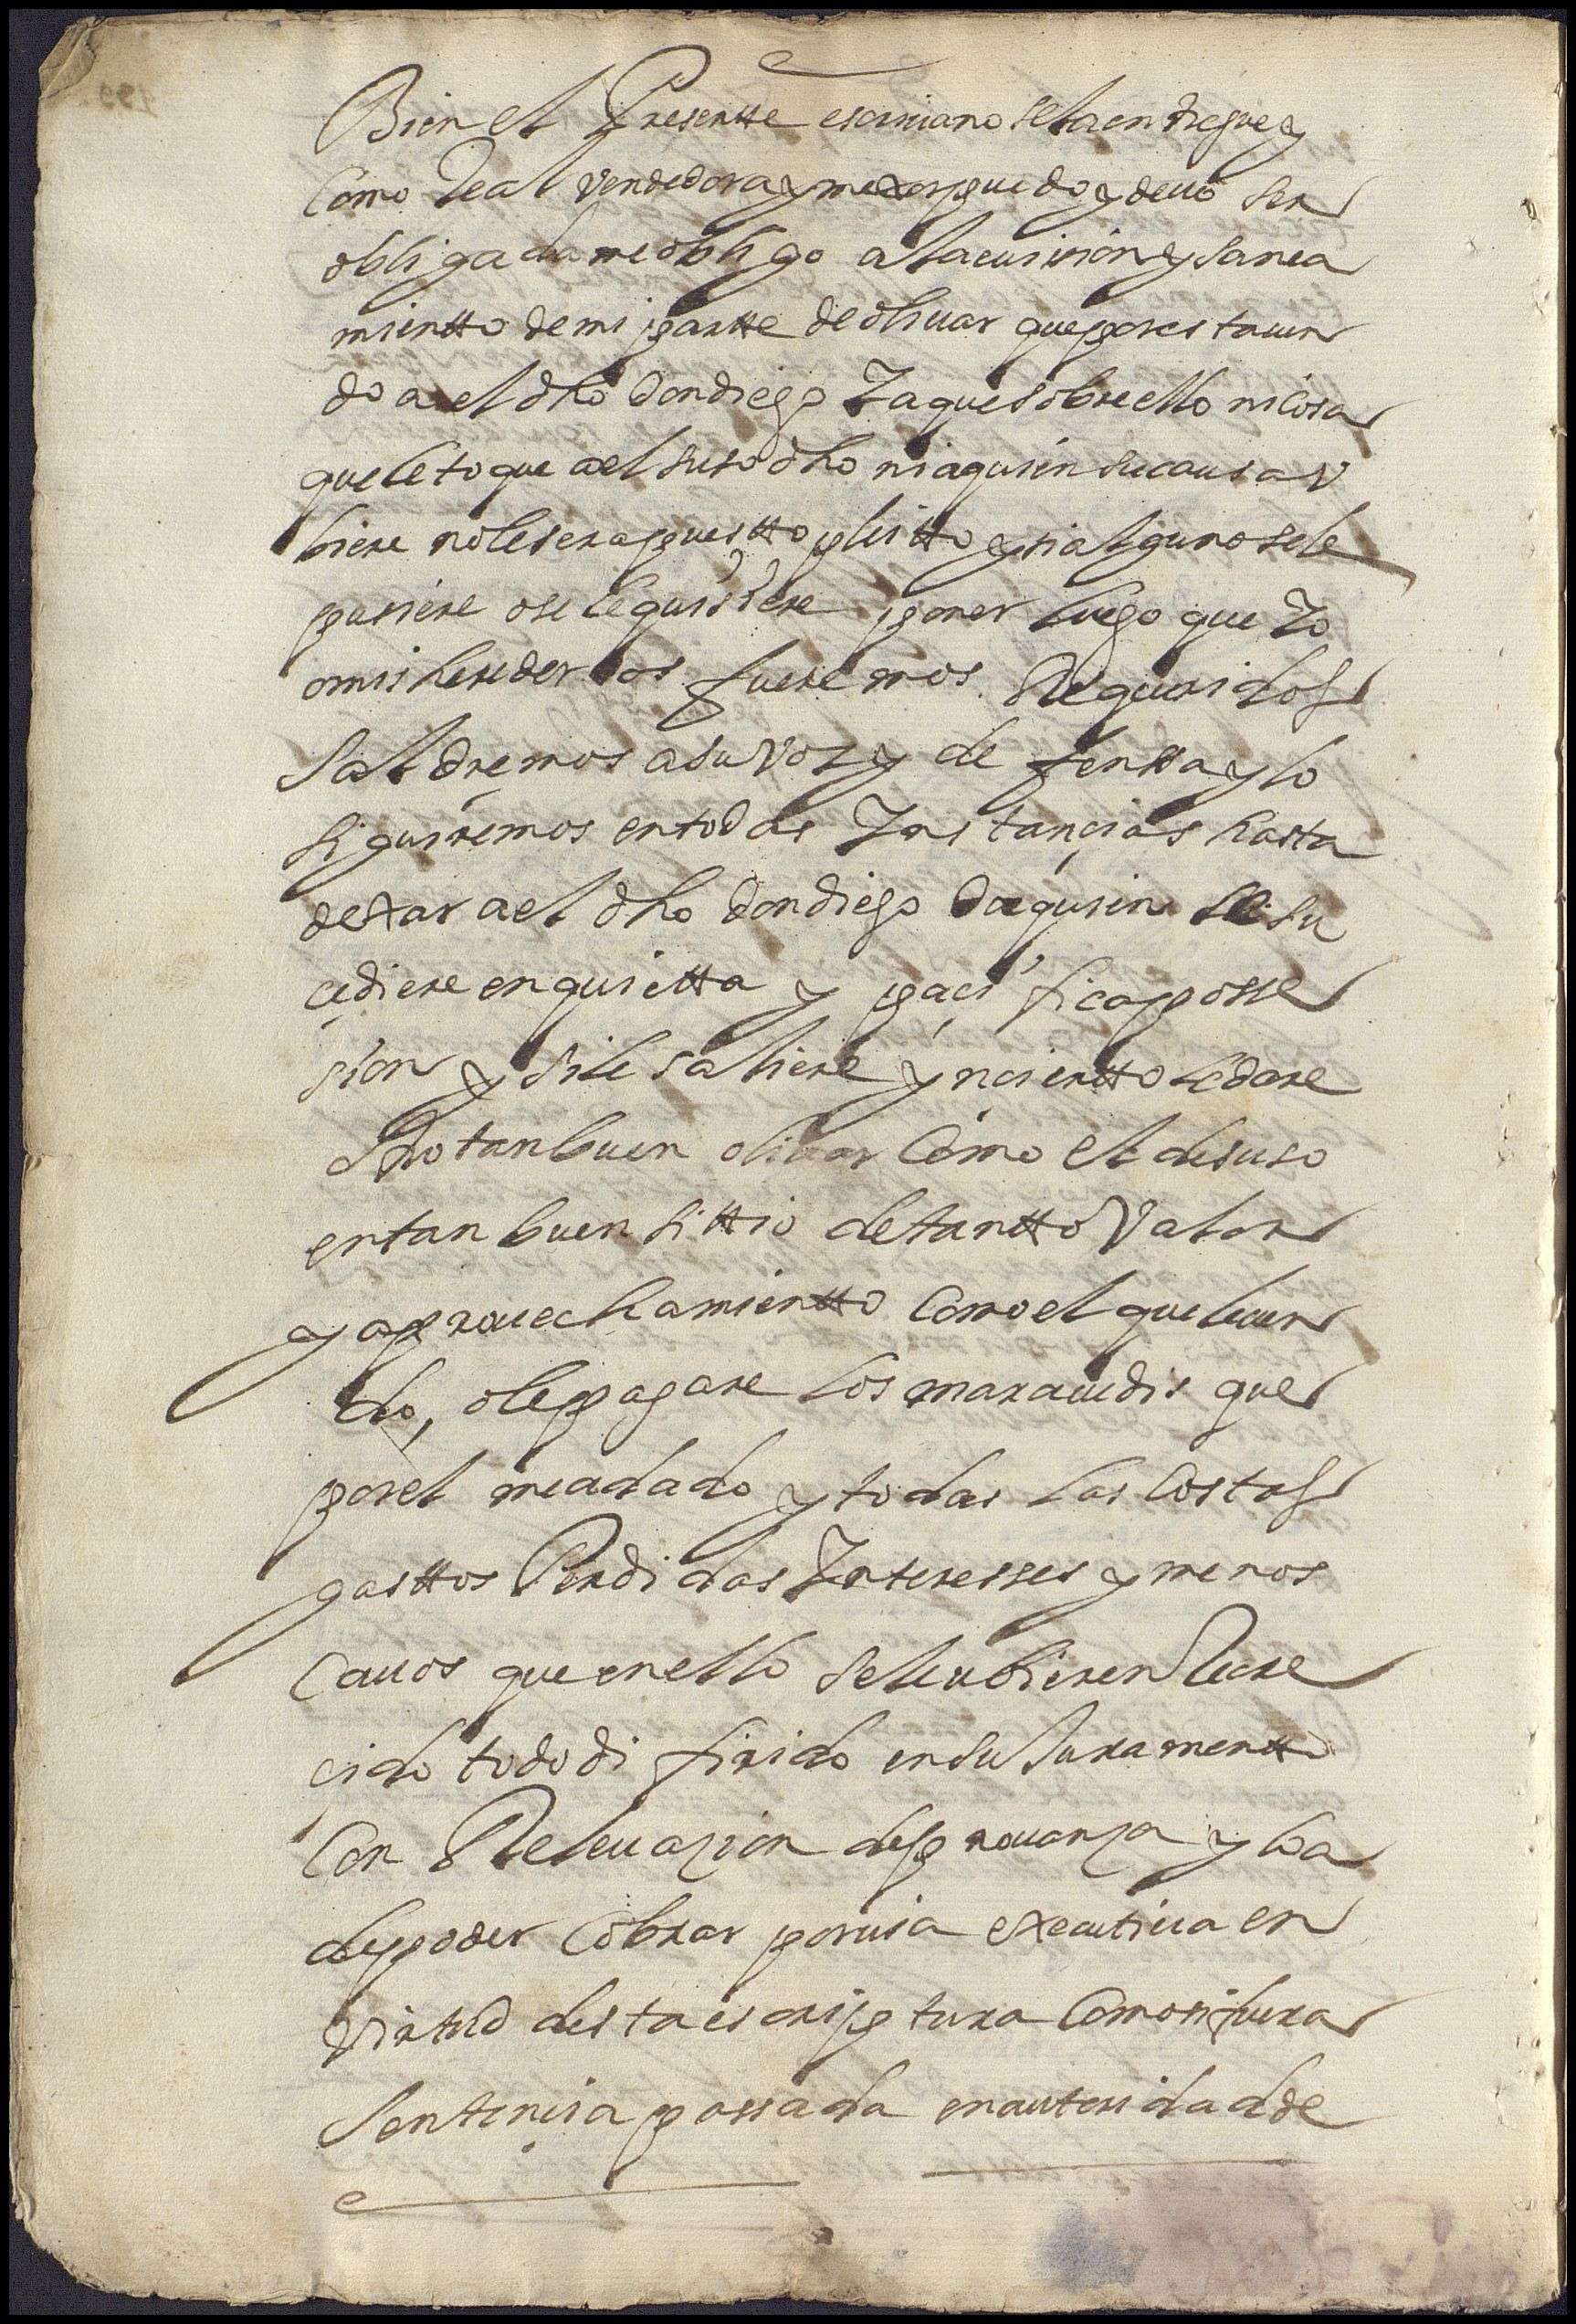 Bien el Presentte escriuano se la entregue y
Como Real vendedora y mexor puedo y deuo ser
obligada me obligo a la euicion y sanea
mientto de mi partte de oliuar que por esta uen
do a el dho Don diego Y a que sobre ello ni Cosa
que le toque a el suso dho ni a quien su causa v
biere no le sera puestto pleitto y si alguno se le
pusiere o se le quisiere poner luego que Yo
o mis herederos fueremos Requeridos
Saldremos a su Voz y defensa y lo
siguiremos en todas Ynstançias hasta
dexar a el dho Don diego o a quien le su
çediere en quietta y paçifica posse
sion y si le saliere ynciertto le dare
otro tan buen oliuar Como el de suso
en tan buen sittio de tantto Valor
y aprouechamientto Como el que le uen
do, o le pagare los marauedis que
por el me a dado y todas las Costas
gasttos Perdidas Yntereses y menos
Cauos que en ello se le ubieren Recre
cido todo difirido en su Juramentto
Con Releuaçion de prouança y la
de poder Cobrar por uia executiua en
Virtud desta escriptura Como si fuera
Sentençia passada en autoridad de